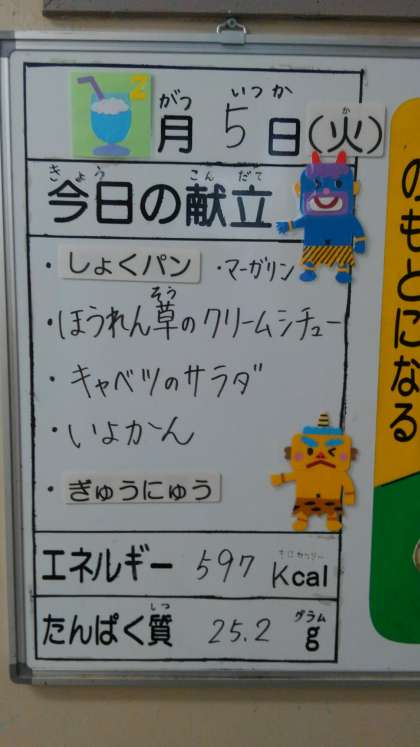 2月5日(火)
がつ いつか か
今日の献立
きょう こんだて
・しょくパン ・マーガリン
・ほうれん草のクリームシチュー
そう
・キャベツのサラダ
・いよかん
・ぎゅうにゅう
エネルギー 597 Kcal
キロカロリー
たんぱく質 25.2 g
しつ グラム
のもとになる